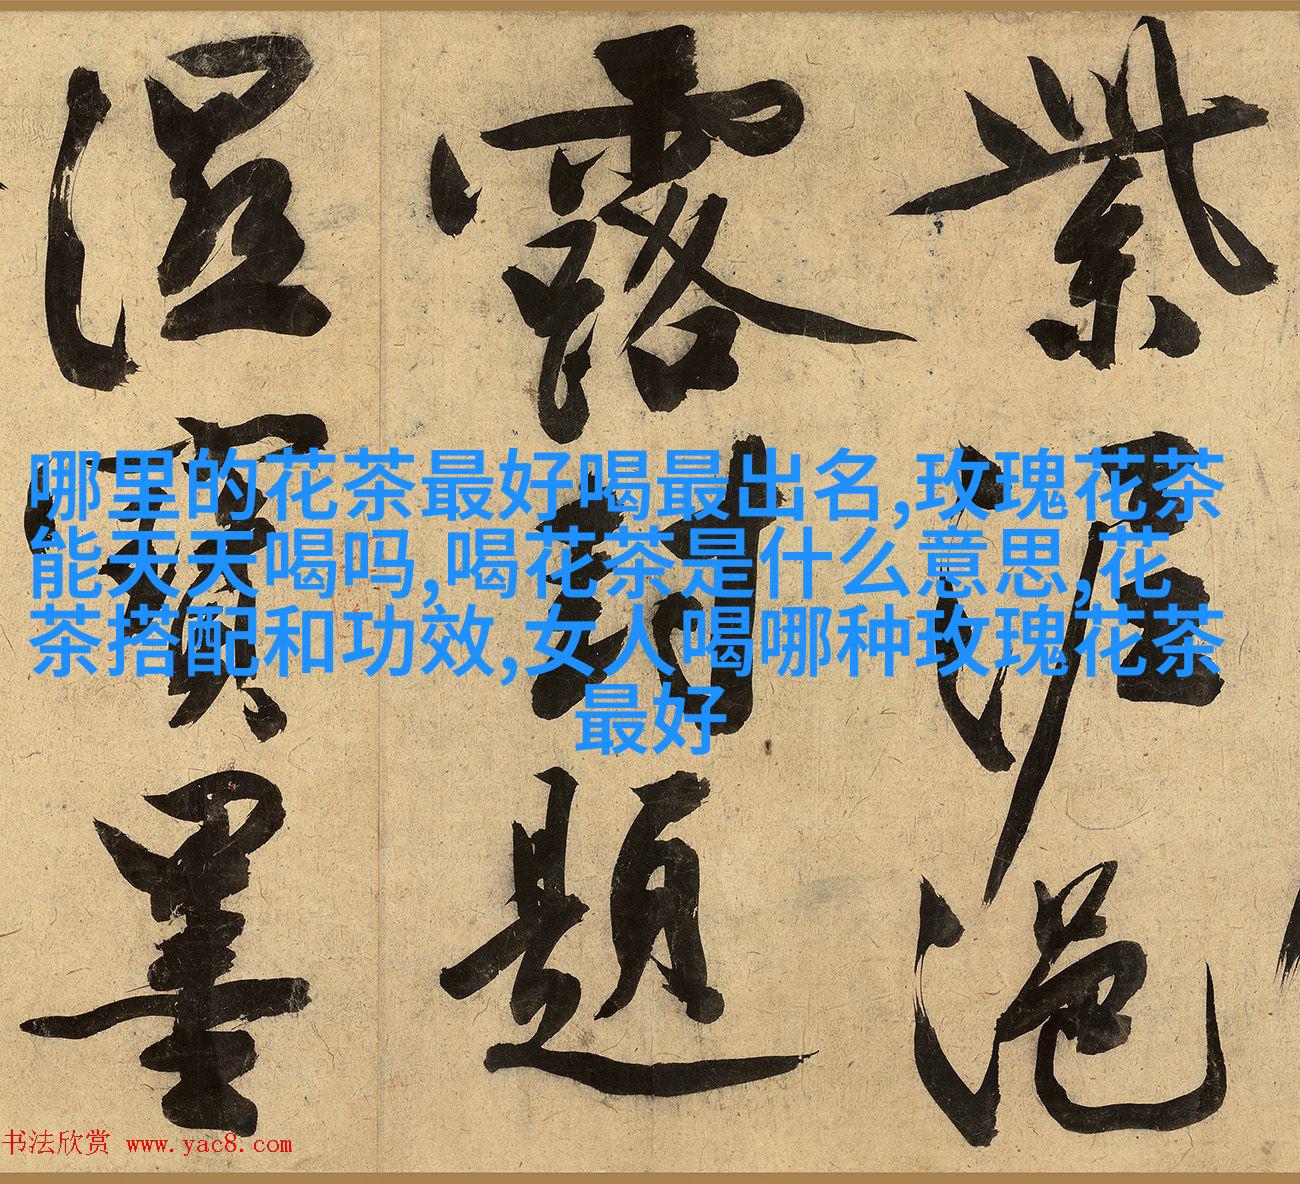 紫泥浥
露封題
濕寶墨
哪里的花茶最好喝最出名,玫瑰花茶
能天天喝吗,喝花茶是什么意思,花
茶搭配和功效,女人喝哪种玫瑰花茶
最好
书法欣赏 www.yac8.com